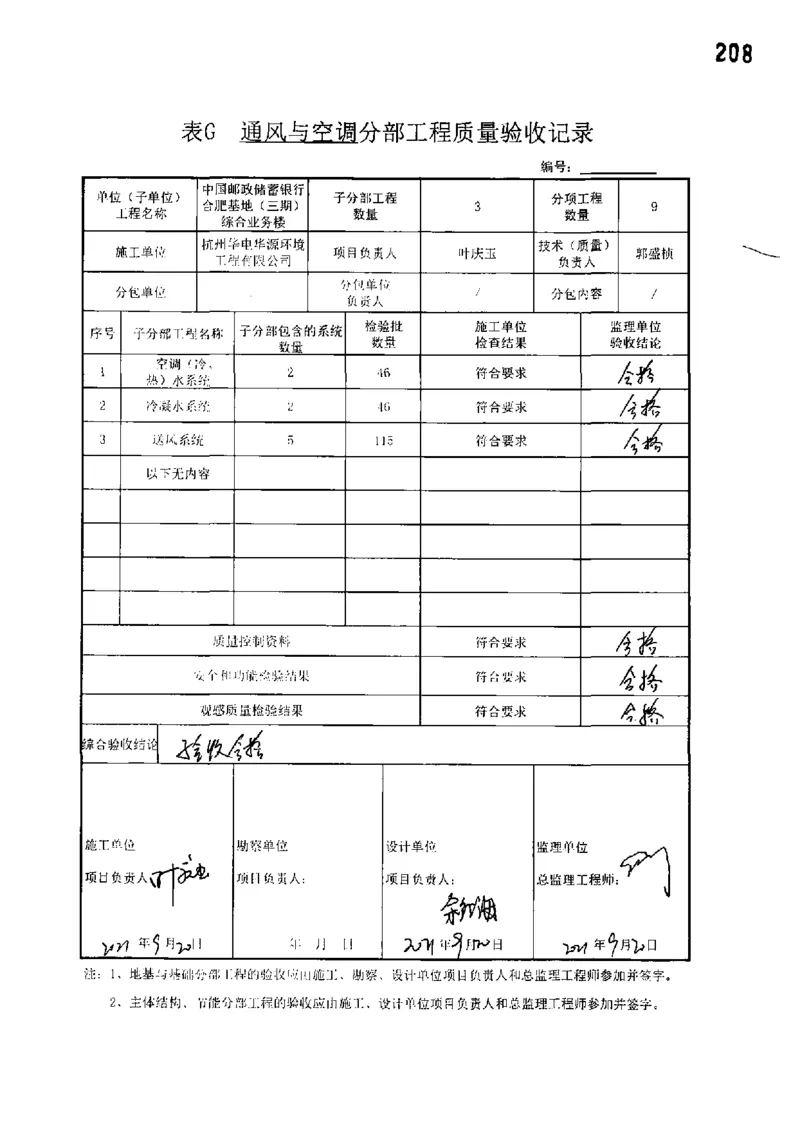 208
表G 通风与空调分部工程质量验收记录
编号：
单位（子单位）工程名称 中国邮政储蓄银行合肥基地（三期）综合业务楼 子分部工程数量 3 分项工程数量 9
施工单位 杭州华电华源环境工程有限公司 项目负责人 叶庆玉 技术（质量）负责人 郭盛桢
分包单位 分包单位负责人 / 分包内容 /
序号 子分部工程名称 子分部包含的系统数量 检验批数量 施工单位检查结果 监理单位验收结论
1 空调（冷、热）水系统 2 46 符合要求 合格
2 冷凝水系统 2 46 符合要求 合格
3 送风系统 5 115 符合要求 合格
以下无内容
质量控制资料 符合要求 合格
安全和功能检验结果 符合要求 合格
观感质量检验结果 符合要求 合格
综合验收结论 验收合格
施工单位 勘察单位 设计单位 监理单位
项目负责人 项目负责人： 项目负责人： 总监理工程师：
2021年9月20日 年 月 日 2021年9月20日 2021年9月20日
注：1、地基与基础分部工程的验收应由施工、勘察、设计单位项目负责人和总监理工程师参加并签字。
2、主体结构、节能分部工程的验收应由施工、设计单位项目负责人和总监理工程师参加并签字。